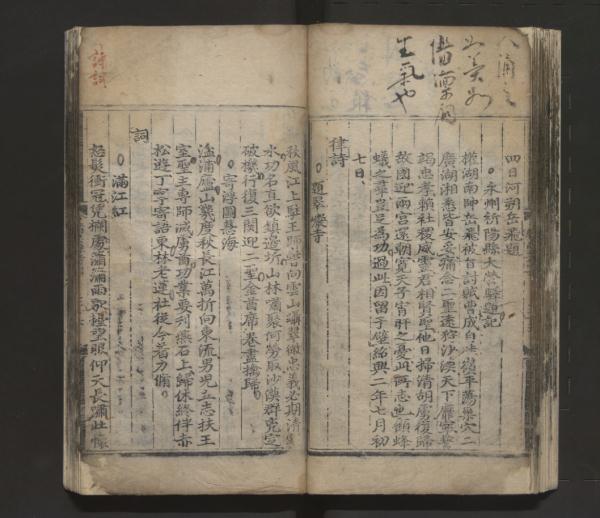 生氣也
四日河朔岳飛題
○永州祈陽縣大營驛題記
權湖南帥岳飛被旨討賊曹成自桂嶺平蕩巢穴二
廣湖湘悉皆安妥痛念二聖遠狩沙漠天下靡寧誓
竭忠孝賴社稷威靈君相賢聖他日掃清胡虜復歸
故國迎兩宮還朝寬天子宵旰之憂此所志也顧蜂
蟻之羣豈足為功過此因留于壁紹興二年七月初
七日
律詩
○題翠巖寺
秋風江上駐王師暫向雲山躡翠微忠義必期清塞
水功名直欲鎮邊圻山林嘯聚何勞取沙漠群兇定
破機行復三關迎二聖金酋席卷盡擒歸
○寄浮圖慧海
湓浦廬山幾度秋長江萬折向東流男兒立志扶王
室聖主專師滅虜酋功業要刊燕石上歸休終伴赤
松遊丁寧寄語東林老蓮社從今着力脩
詩詞
詞
○滿江紅
怒髮衝冠凭欄處瀟瀟雨歇擡望眼仰天長嘯壯懷